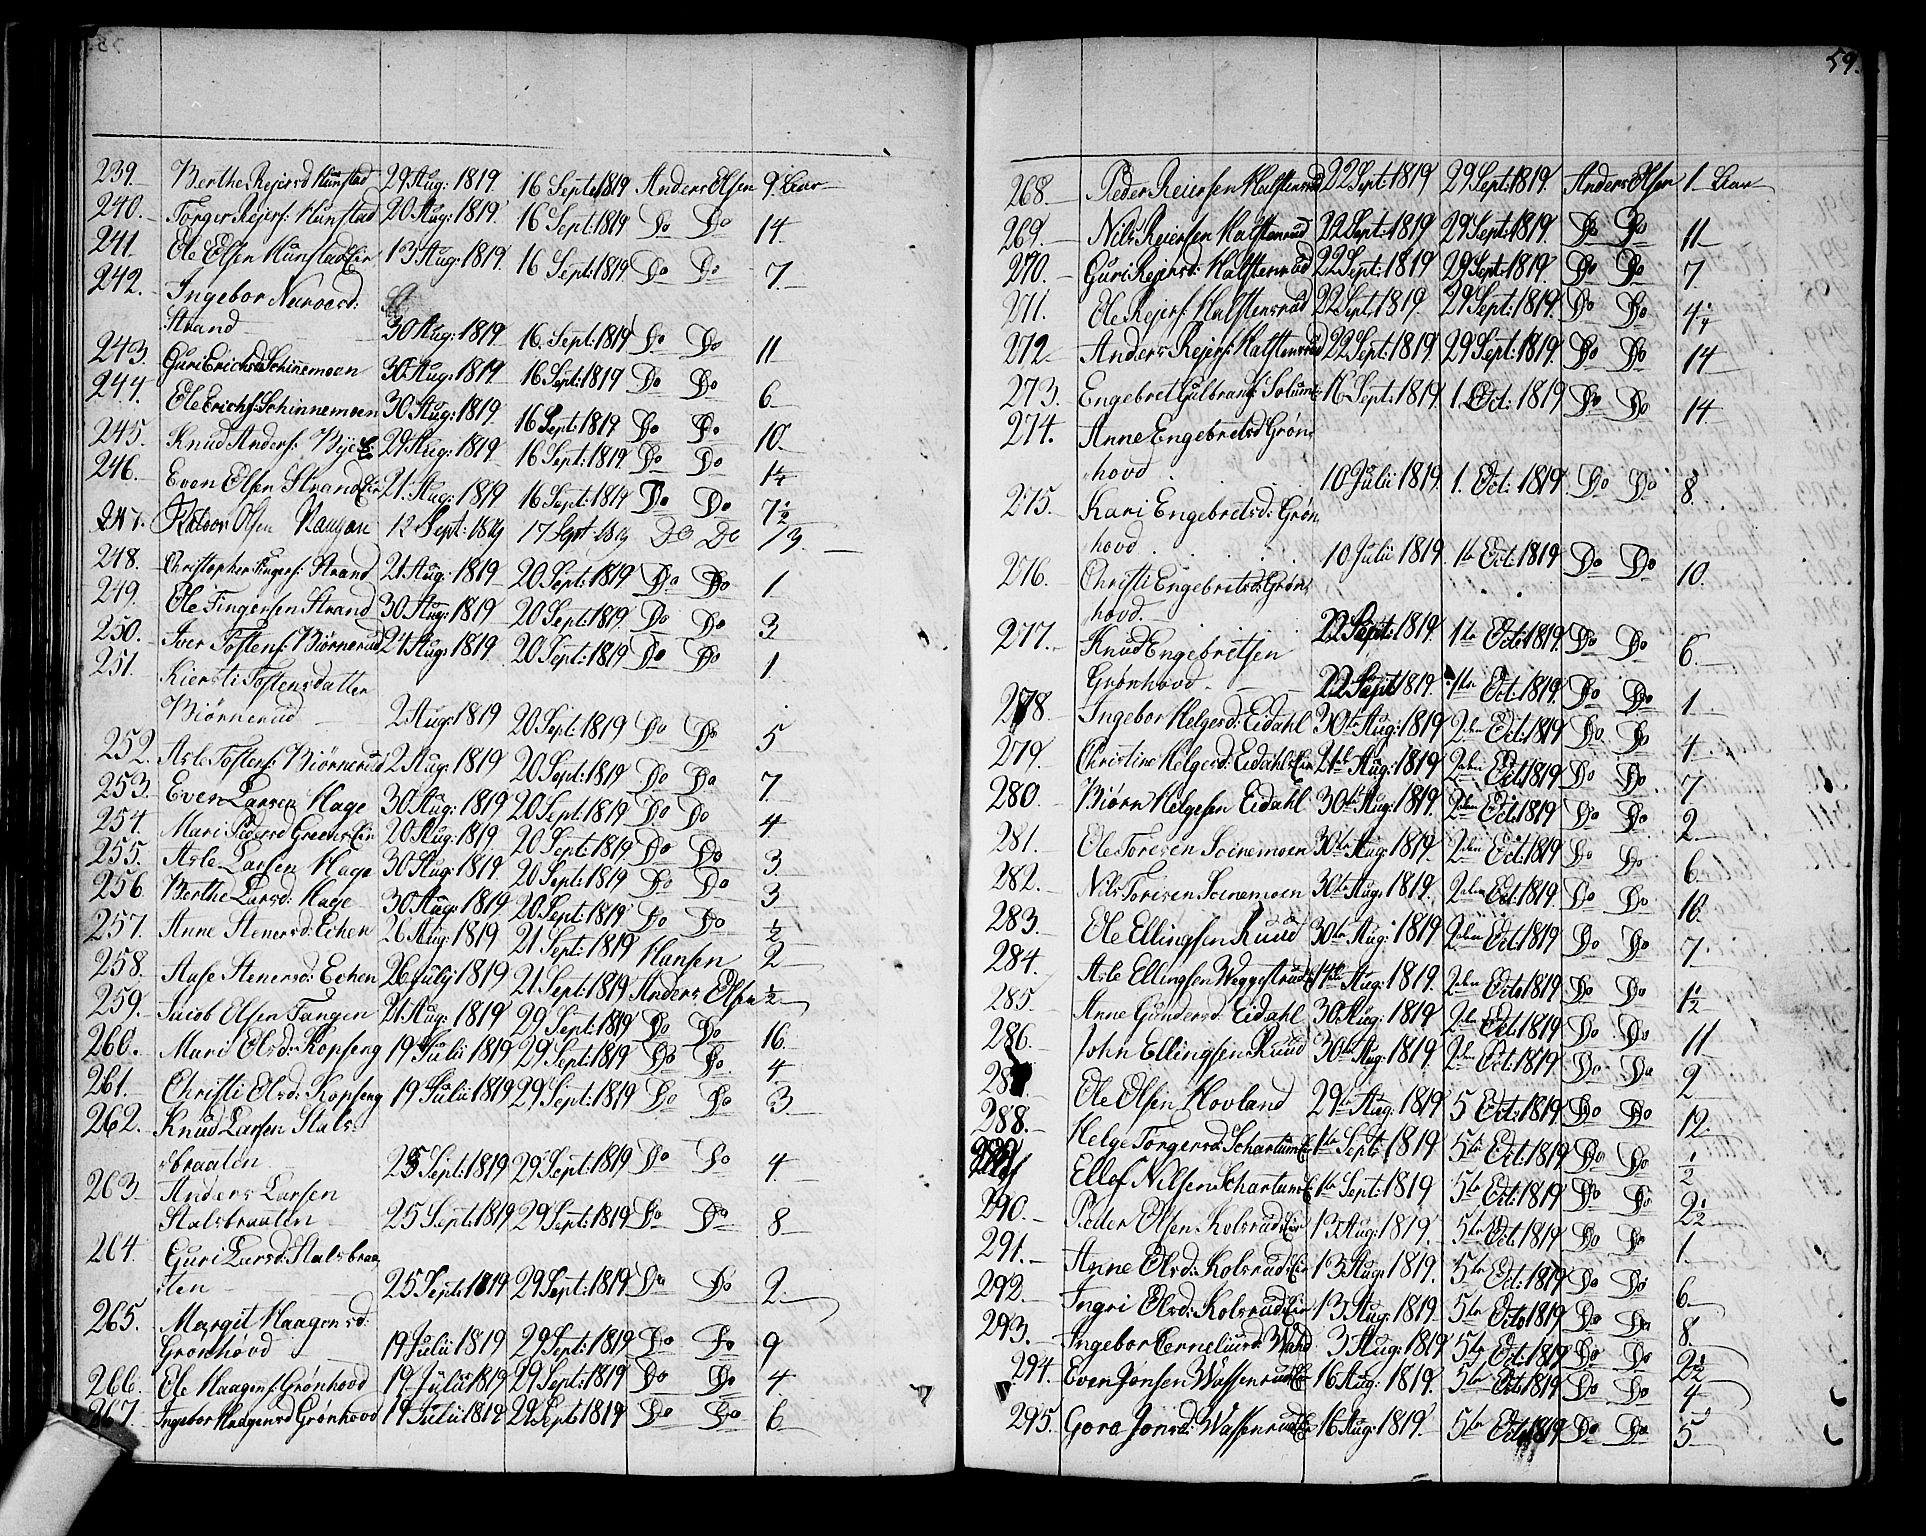 239. Berthe Rejersd Kunstad 29 Aug: 1819. 16 Septe 1819 Anders Olsen 9. Aar
240. Torger Rejers: Kunstad 20 Aug: 1819. 16 Sept: 1819 Do Do 14.
241. Ole Olsen Kunstad Eir 13 Aug: 1819. 16 Sept: 1819 Do Do 7
242. Ingebor
Strand 30 Aug: 1819 16. Sept: 1819 Do Do 11
243. Guri Erichsd Schinnemoen 30 Aug: 1819 16 Sept: 1819 Do Do 6
244. Ole Erichs: Schinnemoen 30 Aug: 1819. 16 Sept: 1819 Do Do 10.
245. Knud Anders: Bye 29 Aug: 1819 16 Sept: 1819 Do Do 14
246. Even Olsen Strand Eir 21 Aug: 1819 16 Sept: 1819 Do Do 7½
247. Olsen 12 Sept: 1819 17 Sept 1819 Do Do 13.
248. Christopher Fingers: Strand 21 Aug: 1819 20 Sept: 1819 Do Do 1
249. Ole Fingersen Strand 30 Aug: 1819 20 Sept: 1819 Do Do 3
250. Iver Tostens: Biørnerud 24 Aug: 1819 20 Sept: 1819 Do Do 1
251. Kiersti Tostensdatter
Biørnerud 2 Aug: 1819 20 Sept: 1819 Do Do 5
252. Asle Tostens: Biørnerud 2 Aug: 1819 20 Sept: 1819 Do Do 7.
253. Even Larsen Hage 30 Aug: 1819 20 Sept: 1819 Do Do 4
254. Mari Green Eir 20 Aug: 1819. 20 Sept: 1819 Do Do 3
255. Asle Larsen Hage 30 Aug: 1819. 20 Sept: 1819 Do Do 3
256. Berthe Larsd: Hage 30 Aug: 1819 20 Sept: 1819 Do Do ½
257. Anne Stenersd: Echen 26 Aug: 1819 21 Sept: 1819 Hansen 2
258. Aase Stenersd: Echen 26 July 1819 21 Sept: 1819 Anders Olsen ½
259. Jacob Olsen Tangen 21 Aug: 1819 29 Sept: 1819 Do Do 16.
260. Mari Olsd: Kopseng 19 Julii 1819 29 Sept: 1819 Do Do. 4
261. Christi Olsd: Kopseng 19 Julii 1819 29 Sept: 1819 Do Do 3
262. Knud Larsen Stals-
braaten 25 Sept: 1819 29 Sept: 1819 Do Do 4.
263 Anders Larsen
Stalsbraaten 25 Sept: 1819 29 Sept: 1819 Do Do 8
264. Guri Larsd: Stalsbraa
ten 25 Sept: 1819 29 Sept: 1819 Do Do 2.
265. Margit Haagensd:
Grønhovd 19 Julii 1819 29 Sept: 1819 Do Do 9
266. Ole Haagens: Grønhovd 19 Julii 1819 29 Sept: 1819 Do Do 4.
267. Ingebor Haagensd Grønhovd 19 Julii 1819 29 Sept 1819 Do Do 6.
59.
268. Peder Reiersen Halstensrud 22 Sept: 1819 29 Sept: 1819. Anders Olsen 1 Aar
269. Nils Reiersen Halstenrud 22 Sept: 1819 29 Sept: 1819. Do Do 11
270. Guri Rejersd: Halstenrud 22 Sept: 1819 29 Sept: 1819. Do Do 7
271. Ole Rejers: Halstensrud 22 Sept: 1819. 29 Sept: 1819. Do Do 4¼
272 Anders Rejers: Halstensrud 22 Sept: 1819. 29 Sept: 1819. Do Do 14
273. Engebret Gulbrans: Solum 16 Sept: 1819. 1. Oct: 1819 Do Do 14.
274. Anne Engebretsd Grøn-
hovd 10 Julii 1819. 1. Oct: 1819. Do Do 8.
275. Kari Engebretsd: Grøn
hovd 10 Julii 1819. 1te Oct: 1819 Do Do 10.
276. Christi Engebretsd: Grøn
hovd. 22 Sept: 1819. 1te Oct: 1819. Do Do 6.
277. Knud Engebretsen
Grønhovd 22 Sept 1819. 1te Oct: 1819. Do Do 1
278 Ingebor Helgesd: Eidahl 30te Aug: 1819 2den Oct: 1819 Do Do 4
279. Christine Helgesd: Eidahls Eir 21de Aug: 1819 2den Oct: 1819 Do Do. 7
280. Biørn Helgesen Eidahl 30te Aug: 1819. 2den Oct: 1819 Do Do. 2.
281. Ole Toresen Scinemoen 30te Aug: 1819. 2den Oct: 1819 Do Do 6.
282. Nils Toresen Scinemoen 30te Aug: 1819. 2den Oct: 1819 Do Do. 10.
283. Ole Ellingsen Ruud 30te Aug: 1819 2den Oct 1819 Do Do. 7
284. Asle Ellingsen Weggestrud 14de Aug: 1819. 2den Octo 1819 Do Do 1½
285. Anne Gundersd: Eidahl 30 Aug: 1819 2den Oct: 1819 Do Do. 11
286. John Ellingsen Ruud 30te Aug: 1819 2den Oct: 1819 Do Do 2
28 Ole Olsen Hovland 29te Aug: 1819 5 Oct: 1819 Do Do 12.
288. Helge Torgersd: Schartum 1te Sept: 1819 5te Oct: 1819 Do Do ½
Ellef Nilsen Schartum 1te Sept: 1819 5te Oct: 1819 Do Do 2½
290. Peder Olsen Kolsrud Eir 13 Aug: 1819. 5te Oct: 1819 Do Do 1.
291. Anne Olsd: Kolsrud Eir 13 Aug: 1819. 5te Oct: 1819 Do Do 6.
292. Ingri Olsd: Kolsrud Eir 13 Aug: 1819. 5te Octo 1819 Do Do 8
293. Ingebor 3 Aug: 1819 5te Oct: 1819 Do Do 2½
294. Even Jonsen Wassenrud 16 Aug: 1819. 5te Octo 1819 Do Do 4
295. Gora Jonsd: Wassenrud 16 Aug: 1819. 5te Octo 1819 Do Do 5